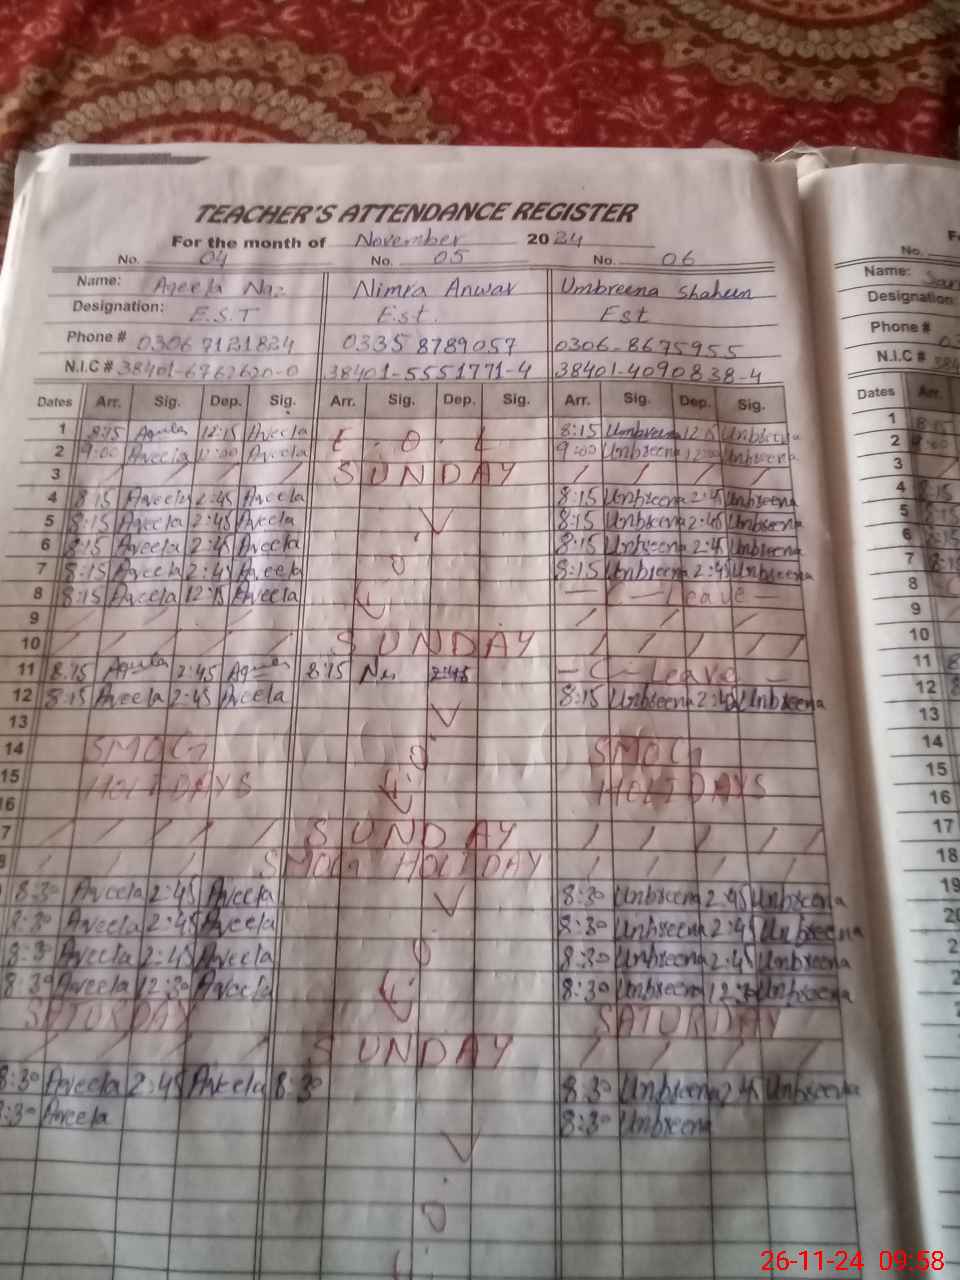 TEACHER'S ATTENDANCE REGISTER
For the month of November 2024
No. 04 No. 05 No. 06 No.
Name: Aqeela Naz Nimra Anwar Umbreena Shaheen Name:
Designation: E.S.T Est. Est Designation
Phone # 0306 7121824 0335 8789057 0306-8675955 Phone #
N.I.C # 38401-6762620-0 38401-5551771-4 38401-4090838-4 N.I.C #
Dates Arr. Sig. Dep. Sig. Arr. Sig. Dep. Sig. Arr. Sig. Dep. Sig. Dates Arr.
1 8:15 Aqeela 12:15 Aqeela L . O . L 8:15 Umbreena 12:15 Umbreena 1 8:15
2 9:00 Aqeela 12:00 Aqeela 9:00 Unbreena 12:00 Unbreena 2 9:00
3 / / / / SUNDAY / / / / 3
4 8:15 Aqeela 2:45 Aqeela 8:15 Unbreena 2:45 Unbreena 4 8:15
5 8:15 Aqeela 2:45 Aqeela 8:15 Unbreena 2:45 Unbreena 5 8:15
6 8:15 Aqeela 2:45 Aqeela 8:15 Unbreena 2:45 Unbreena 6 8:15
7 8:15 Aqeela 2:45 Aqeela O 8:15 Unbreena 2:45 Unbreena 7
8 8:15 Aqeela 12:15 Aqeela L - C - Leave - 8
9 / / / / / / / / 9
10 / / / / SUNDAY / / / / 10
11 8:15 Aqeela 2:45 Aqeela 8:15 2:45 - C - Leave - 11
12 8:15 Aqeela 2:45 Aqeela 8:15 Unbreena 2:40 Unbreena 12
13 13
14 SMOG O SMOG 14
15 HOLIDAYS L HOLIDAYS 15
16 16
7 / / / / SUNDAY / / / / 17
8 / / / SMOG HOLIDAY / / / / 18
8:30 Aqeela 2:45 Aqeela 8:30 Unbreena 2:45 Unbreena 19
8:30 Aqeela 2:45 Aqeela 8:30 Unbreena 2:45 Unbreena
8:30 Aqeela 2:45 Aqeela O 8:30 Unbreena 2:45 Unbreena
8:30 Aqeela 12:30 Aqeela L 8:30 Unbreena 12:30 Unbreena
SATURDAY SATURDAY
/ / / / SUNDAY / / / /
8:30 Aqeela 2:45 Aqeela 8:30 8:30 Unbreena 2:45 Unbreena
8:30 Aqeela 8:30 Unbreena
O
26-11-24 09:58